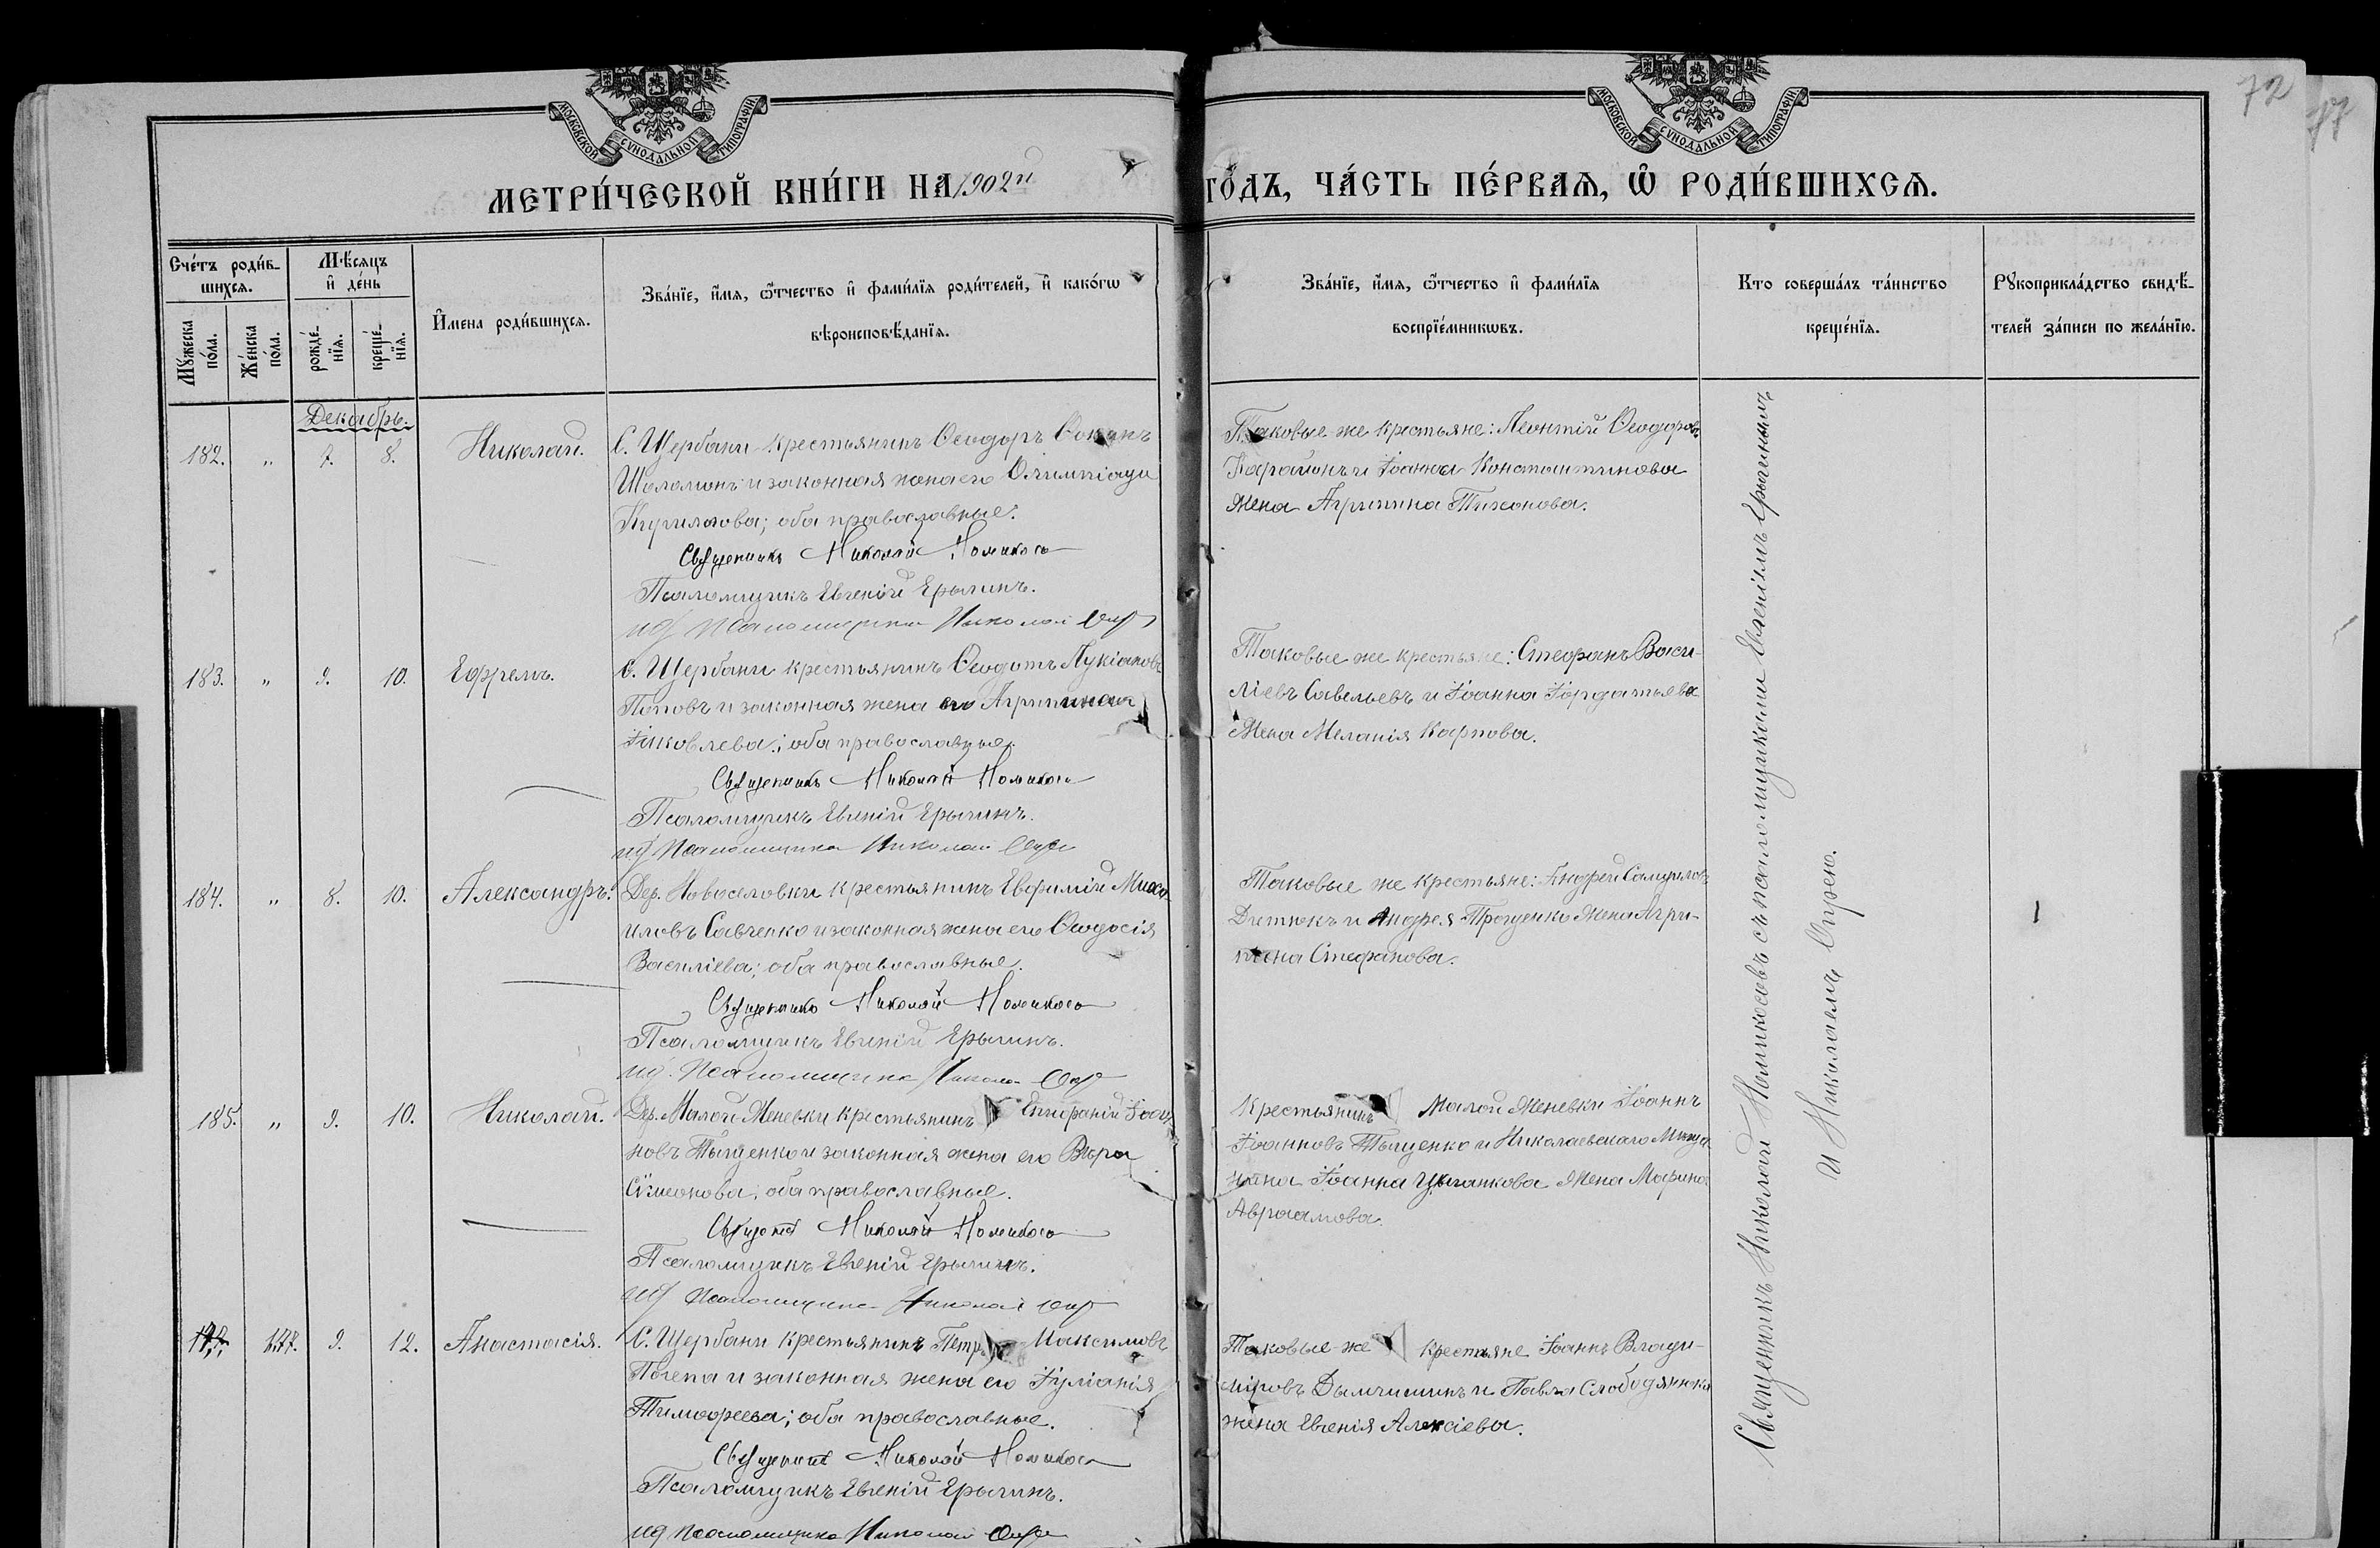 72
77
МОСКОВСКОЙ СѴНОДАЛЬНОЙ ТИПОГРАФІИ
МОСКОВСКОЙ СѴНОДАЛЬНОЙ ТИПОГРАФІИ
МЕТРИ́ЧЕСКОЙ КНИ́ГИ НА 1902й
ГО́ДЪ, ЧА́СТЬ ПЕ́РВАѦ, Ѽ РОДИ́ВШИХСѦ.
Сче́тъ роди́в-
шихсѧ.
Мꙋ́жеска по́ла.
Же́нска по́ла.
Мѣ́сѧцъ
и҆ де́нь
рожде́-
нїѧ.
креще́-
нїѧ.
И҆мена роди́вшихсѧ.
Зва́нїе, и҆́мѧ, ѻ҆́тчество и҆ фами́лїѧ роди́телей, и҆ како́гѡ
вѣроисповѣ́данїѧ.
Зва́нїе, и҆́мѧ, ѻ҆́тчество и҆ фами́лїѧ
воспрїе́мникѡвъ.
Кто соверша́лъ та́инство
креще́нїѧ.
Рꙋкоприкла́дство свидѣ́-
телей за́писи по жела́нїю.
Декабрь.
182. " 7. 8. Николай.
С. Щербани крестьянинъ Ѳеодоръ
и законная жена его Олимпіада
Кириллова; оба православные.
Священникъ Николай Номикосъ
Псаломщикъ Евгеній Ерыгинъ.
ид псаломщика Николай
Таковые же крестьяне: Леонтій Ѳеодоровъ
и Іоанна Константинова
жена Агрипина Тихонова.
183. " 9. 10. Ефремъ.
С. Щербани крестьянинъ Ѳеодотъ Лукіановъ
Поповъ и законная жена его Агрипина
Іаковлева; оба православные.
Священникъ Николай Номикосъ
Псаломщикъ Евгеній Ерыгинъ.
ид псаломщика Николай
Таковые же крестьяне: Стефанъ Васи-
ліевъ Савельевъ и Іоанна Гордатьева
жена Меланія Карпова.
184. " 8. 10. Александръ.
Дер. Новоселовки крестьянинъ Евфимій Михаи-
ловъ Савченко и законная жена его Ѳеодосія
Василіева; оба православные.
Священникъ Николай Номикосъ
Псаломщикъ Евгеній Ерыгинъ.
ид. псаломщика Николай
Таковые же крестьяне: Андрей Самуиловъ
и Андрея Троценко жена Агри-
пина Стефанова.
185. " 9. 10. Николай.
Дер. Малой Женевки крестьянинъ Епифаній Іоан-
новъ Тыщенко и законная жена его Вѣра
Сѵмеонова; оба православные.
Николай Номикосъ
Псаломщикъ Евгеній Ерыгинъ.
ид псаломщика Николай
Крестьянинъ Малой Женевки Іоаннъ
Іоанновъ Тыщенко и Николаевскаго мѣща-
нина Іоанна Цыганкова жена Марина
Авраамова.
177. 9. 12. Анастасія.
С. Щербани крестьянинъ Петръ Максимовъ
и законная жена его Іуліанія
Тимоѳеева; оба православные.
Священникъ Николай Номикосъ
Псаломщикъ Евгеній Ерыгинъ.
ид псаломщика Николай
Таковые же крестьяне Іоаннъ Влади-
міровъ и Павла Слободянюка
жена Евгенія Алексіева.
Священникъ Николай Номикосовъ съ псаломщиками Евгеніемъ Ерыгинымъ
и Николаемъ